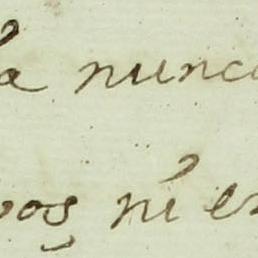 la nunca
vos ni en